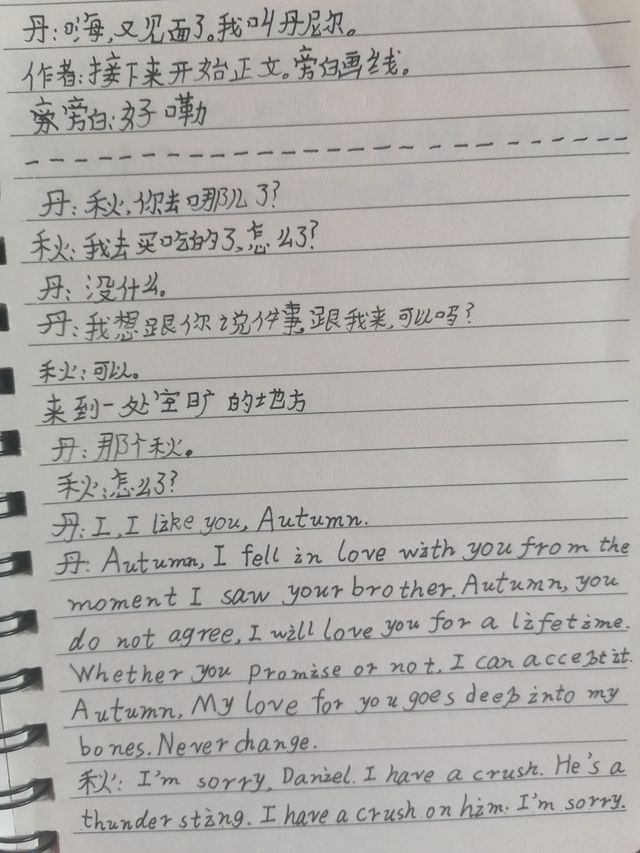 丹:嗨,又见面了。我叫丹尼尔。
作者:接下来开始正文。旁白画线。
旁白:好嘞
丹:秋,你去哪儿了?
秋:我去买吃的了,怎么了?
丹:没什么。
丹:我想跟你说件事,跟我来,可以吗?
秋:可以。
来到一处空旷的地方
丹:那个秋。
秋:怎么了?
丹:I, I like you, Autumn.
丹: Autumn, I fell in love with you from the
moment I saw your brother. Autumn, you
do not agree, I will love you for a lifetime.
Whether you promise or not, I can accept it.
Autumn, My love for you goes deep into my
bones. Never change.
秋: I'm sorry, Daniel. I have a crush. He's a
thunder sting. I have a crush on him. I'm sorry.